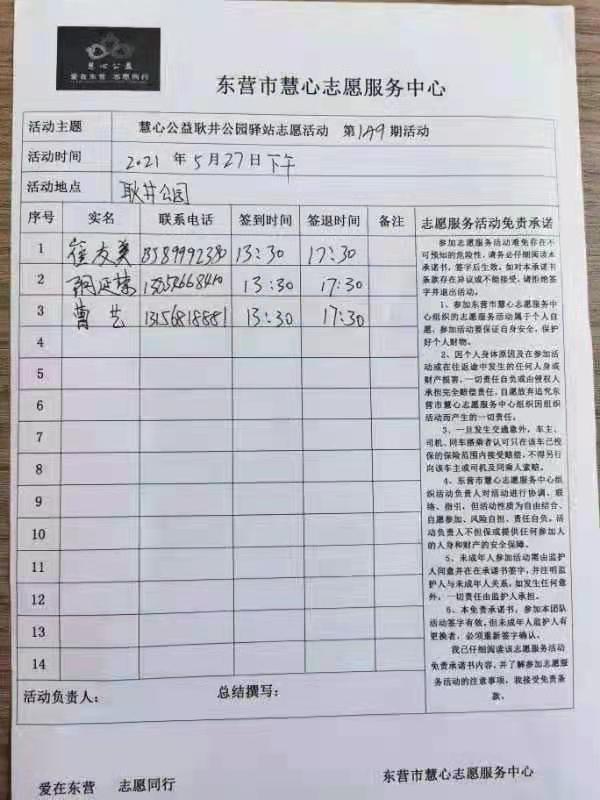 慧心公益
爱在东营 志愿同行
东营市慧心志愿服务中心
活动主题 慧心公益耿井公园驿站志愿活动 第149期活动
活动时间 2021年5月27日下午
活动地点 耿井公园
序号 实名 联系电话 签到时间 签退时间 备注
1 崔友美 13:30 17:30
2 13:30 17:30
3 曹艺 13156818881 13:30 17:30
4
5
6
7
8
9
10
11
12
13
14
志愿服务活动免责承诺
参加志愿服务活动难免存在不
可预知的危险性，请务必仔细阅读本
承诺书，签字后生效。如对本承诺书
条款存在异议或不能接受，请拒绝签
字并退出活动。
1、参加东营市慧心志愿服务中
心组织的志愿服务活动属于个人自
愿，参加活动要保证自身安全，保护
好个人财物。
2、因个人身体原因及在参加活
动或在往返途中发生的任何人身或
财产损害，一切责任自负或由侵权人
承担完全赔偿责任，自愿放弃追究东
营市慧心志愿服务中心组织因组织
活动而产生的一切责任。
3、一旦发生交通意外，车主、
司机、同车搭乘者认可只在该车已投
保的保险范围内接受赔偿，不得另行
向该车主或司机及同乘人索赔。
4、东营市慧心志愿服务中心组
织活动负责人对活动进行协调、联
络、指引，但活动性质为自由结合、
自愿参加、风险自担、责任自负。活
动负责人不担保或提供任何参加人
的人身和财产的安全保障。
5、未成年人参加活动需由监护
人同意并在在承诺书签字，并注明监
护人与未成年人关系，如发生任何意
外，一切责任由监护人承担。
6、本免责承诺书，参加本团队
活动签字有效，但未成年人监护人有
更换者，必须重新签字确认。
我已仔细阅读该志愿服务活动
免责承诺书内容，并了解参加志愿服
务活动的注意事项，我接受免责条
款。
活动负责人： 总结撰写：
爱在东营 志愿同行 东营市慧心志愿服务中心